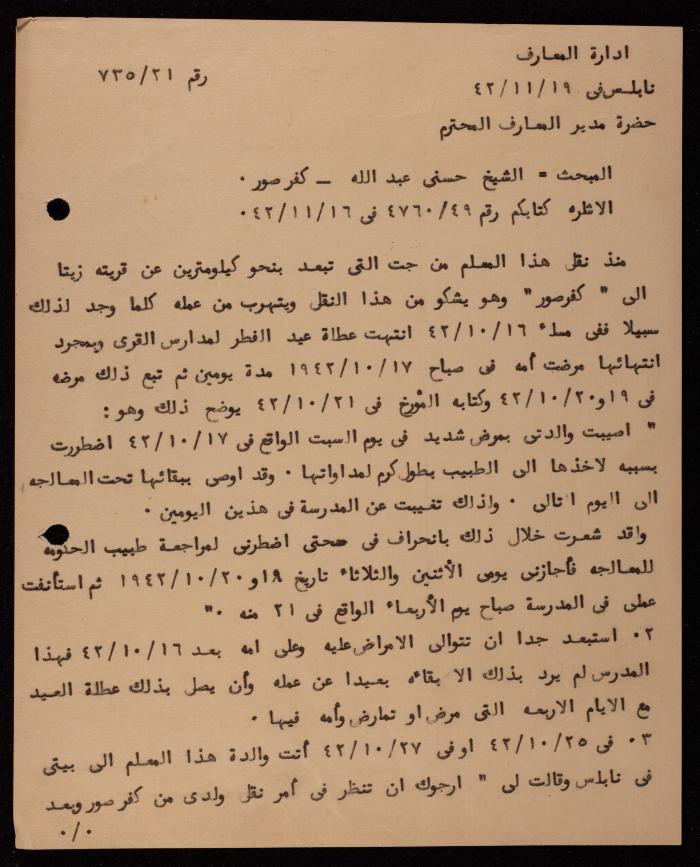 ادارة المعارف
رقم ٧٣٥/٢١
نابلس فى ٤٢/١١/١٩
حضرة مدير المعارف المحترم
المبحث = الشيخ حسنى عبد الله – كفر صور ·
الاشاره كتابكم رقم ٤٧٦٠/٤٩ فى ٤٢/١١/١٦ ·
منذ نقل هذا المعلم من جت التى تبعد بنحو كيلومترين عن قريته زيتا
الى " كفرصور " وهو يشكو من هذا النقل ويتهرب من عمله كلما وجد لذلك
سبيلا ففى مساء ٤٢/١٠/١٦ انتهت عطلة عيد الفطر لمدارس القرى وبمجرد
انتهائها مرضت أمه فى صباح ١٩٤٢/١٠/١٧ مدة يومين ثم تبع ذلك مرضه
فى ١٩ و٤٢/١٠/٢٠ وكتابه المؤرخ فى ٤٢/١٠/٢١ يوضح ذلك وهو :
" اصيبت والدتى بمرض شديد فى يوم السبت الواقع فى ٤٢/١٠/١٧ اضطررت
بسببه لاخذها الى الطبيب بطولكرم لمداواتها · وقد اوصى ببقائها تحت المعالجه
الى اليوم التالى · ولذلك تغيبت عن المدرسة فى هذين اليومين ·
ولقد شعرت خلال ذلك بانحراف فى صحتى اضطرنى لمراجعة طبيب الحكومه
للمعالجه فأجازنى يومى الأثنين والثلاثاء تاريخ ١٩ و١٩٤٢/١٠/٢٠ ثم استأنفت
عملى فى المدرسة صباح يوم الأربعاء الواقع فى ٢١ منه ·"
٢· استبعد جدا ان تتوالى الامراض عليه وعلى امه بعد ٤٢/١٠/١٦ فهذا
المدرس لم يرد بذلك الا بقاءه بعيدا عن عمله وأن يصل بذلك عطلة العيد
مع الايام الاربعه التى مرض او تمارض وأمه فيها ·
٣· فى ٤٢/١٠/٢٥ او فى ٤٢/١٠/٢٧ أتت والدة هذا المعلم الى بيتى
فى نابلس وقالت لى " ارجوك ان تنظر فى أمر نقل ولدى من كفر صور وبعد
٠/٠